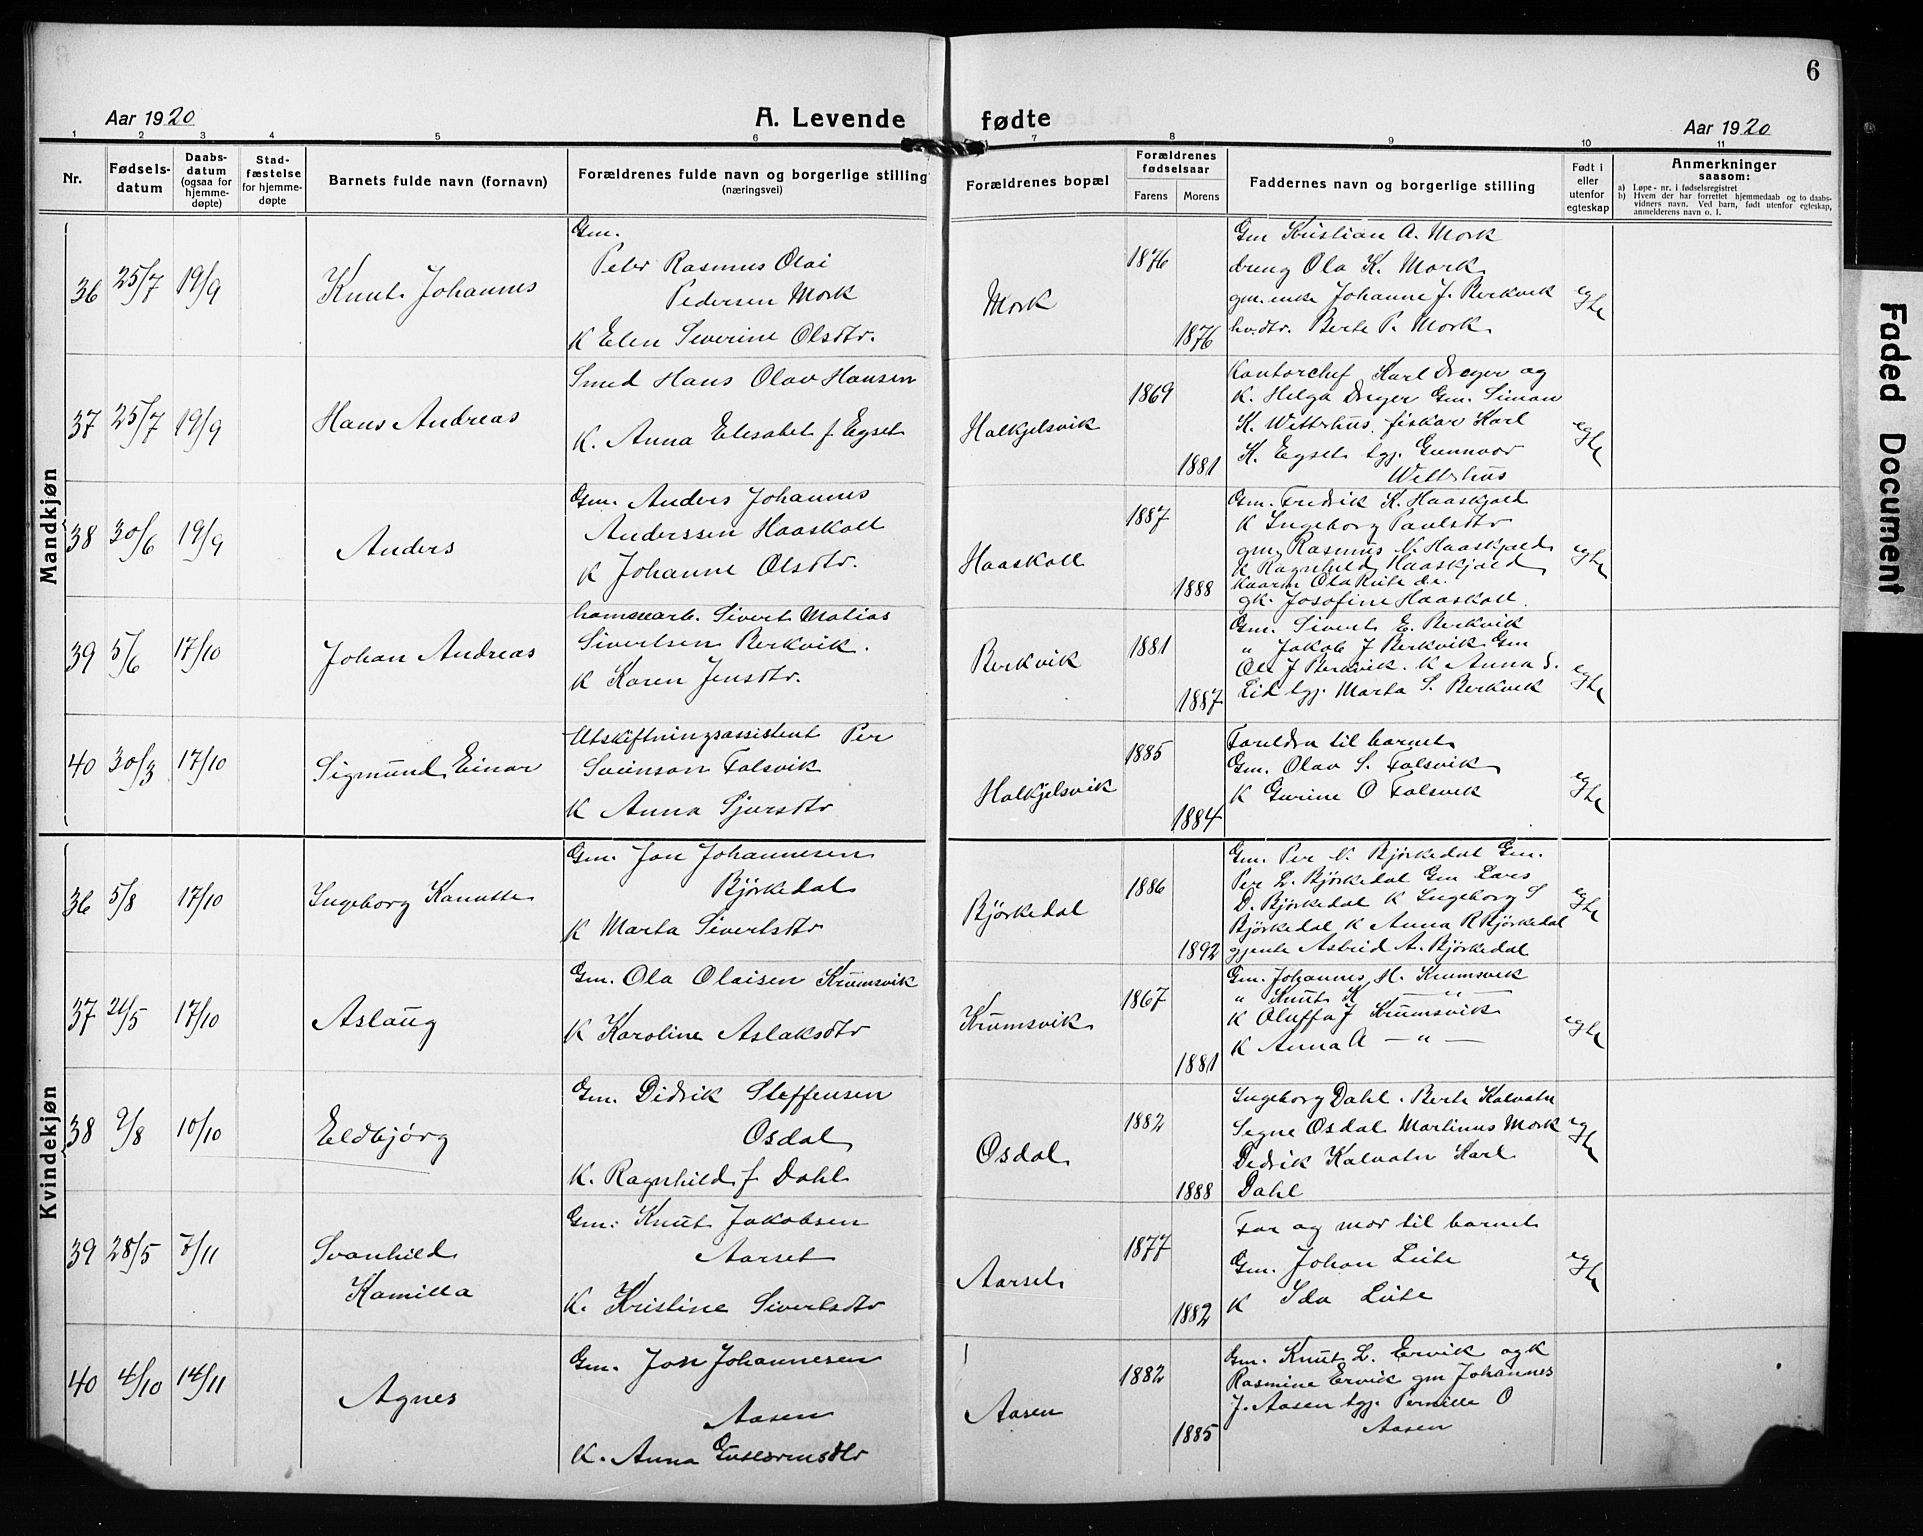 6
Aar 1920
A. Levende fødte
Aar 1920
1 2 3 4 5 6 7 8 9 10 11
Nr.
Fødsels-
datum
Daabs-
datum
(ogsaa for
hjemme-
døpte)
Stad-
fæstelse
for hjemme-
døpte
Barnets fulde navn (fornavn)
Forældrenes fulde navn og borgerlige stilling
(næringsvei)
Forældrenes bopæl
Forældrenes
fødselsaar
Farens Morens
Faddernes navn og borgerlige stilling
Født i
eller
utenfor
egteskap
Anmerkninger
saasom:
a) Løpe-nr. i fødselsregistret
b) Hvem der har forrettet hjemmedaab og to daabs-
vidners navn. Ved barn, født utenfor egteskap,
anmelderens navn o. l.
Mandkjøn
36 25/7 19/9 Knut Johannes
Gm.
Peter Rasmus Olai
Pedersen Mork
K Elen Severine Olsdtr.
Mork
1876
1876
Gm Kristian A. Mork
dreng Ola K. Mork
gm. enke Johanne J. Berkvik
hv.dtr. Berte P. Mork
egte
37 25/7 19/9 Hans Andreas
Smed Hans Olav Hansen
K. Anna Elesabet f Egset
Halkjelsvik
1869
1881
Kontorchef Karl Dreyer og
K. Helga Dreyer Gm. Simon
K. Witterhus. fiskar Karl
K. Egset tgj. Gunnvor
Witterhus
egte
38 30/6 19/9 Anders
Gm. Anders Johannes
Anderssen Haaskoll
K Johanne Olsdtr.
Haaskoll
1887
1888
Gm. Fredrik K. Haaskjold
K Ingeborg Paulsdtr
gm. Rasmus N. Haaskjold
K Ragnhild Haaskjold
Ola
gk. Josefine Haaskoll.
egte
39 5/6 17/10 Johan Andreas
Sivert Matias
Sivertsen Berkvik.
K Karen Jensdtr.
Berkvik
1881
1887
Gm. Sivert E. Berkvik
" Jakob J Berkvik Gm
Ole J Berkvik. K Anna S.
Lid tgj. Marta S. Berkvik
egte
40 30/3 17/10 Sigmund Einar
Utskiftningsassistent Per
Sveinson Folsvik
K Anna Sjursdtr
Halkjelsvik
1885
1884
Foreldra til barnet
Gm. Olav S. Folsvik
K Gurine O Folsvik
egte
Kvindekjøn
36 5/8 17/10 Ingeborg Kanutte
Gm. Jon Johannesen
Bjørkedal
K Marta Sivertsdtr
Bjørkedal
1886
1892
Gm. Per N. Bjørkedal Gm.
Per L. Bjørkedal Gm Lars
D. Bjørkedal K Ingeborg S
Bjørkedal K Anna R Bjørkedal
gjente Astrid A. Bjørkedal
egte
37 21/5 17/10 Aslaug
Gm. Ola Olaisen Krumsvik
K Karoline Aslaksdtr
Krumsvik
1867
1881
Gm. Johannes M. Krumsvik
" Knut K — " —
K Oluffa J Krumsvik
K Anna A — " —
egte
38 9/8 10/10 Eldbjørg
Gm. Didrik Steffensen
Osdal
K. Ragnhild f Dahl
Osdal
1882
1888
Ingeborg Dahl. Berte Kalvatn
Signe Osdal Martinus Mork
Didrik Kalvatn Karl
Dahl
egte
39 28/5 7/11 Svanhild
Kamilla
Gm: Knut Jakobsen
Aarset
K. Kristine Sivertsdtr
Aarset
1877
1882
Far og mor til barnet
Gm. Johan Leite
K Ida Leite
egte
40 4/10 14/11 Agnes
Gm. Jon Johannesen
Aasen
K. Anna
Aasen
1882
1885
Gm. Knut L. Ervik og K
Rasmine Ervik gm Johannes
J. Aasen tgj. Pernille O
Aasen
Faded Document